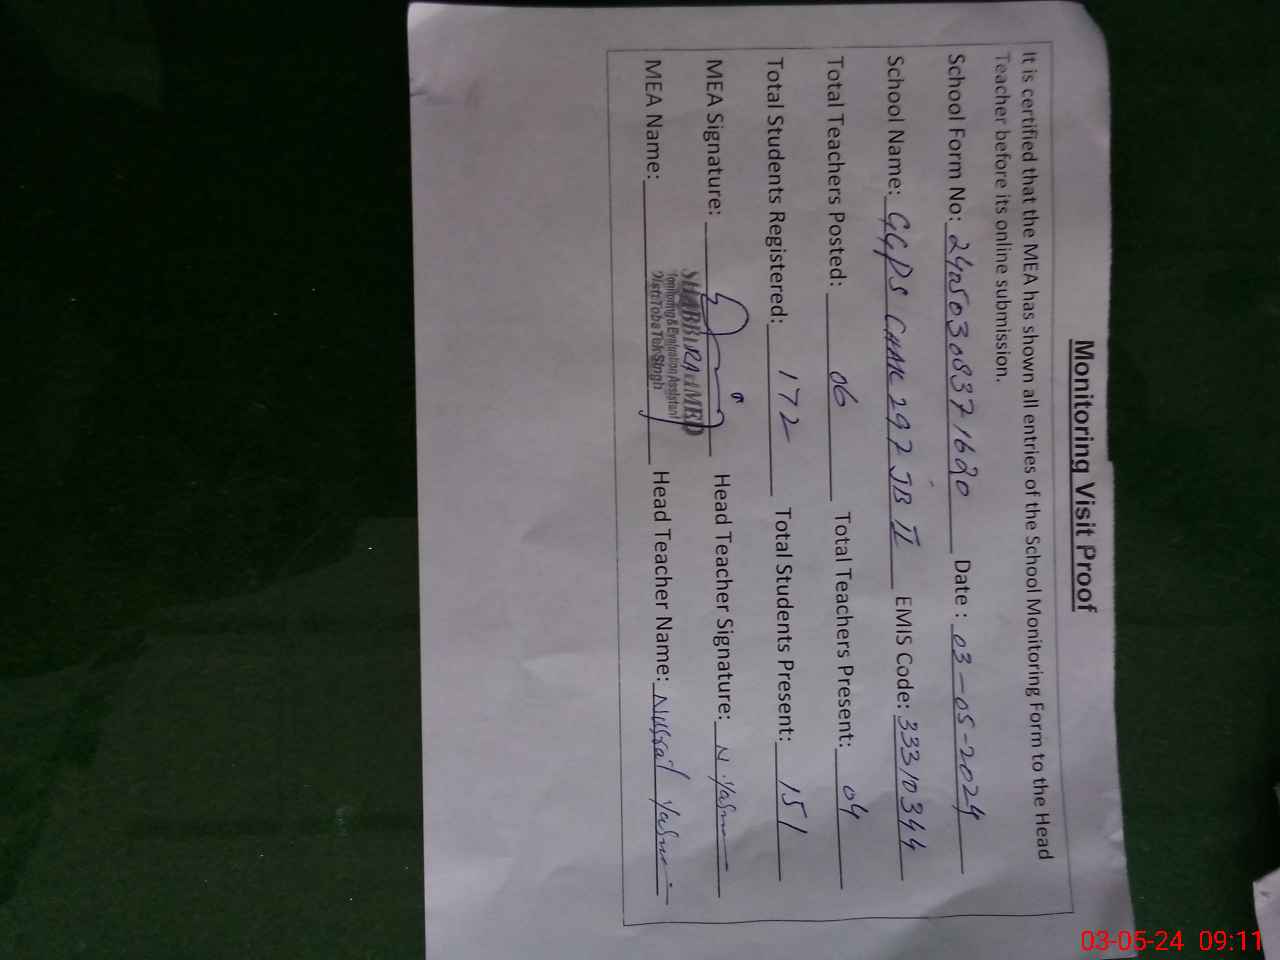 Monitoring Visit Proof
It is certified that the MEA has shown all entries of the School Monitoring Form to the Head
Teacher before its online submission.
School Form No: 24050308371620 Date : 03-05-2024
School Name: GGPS CHAK 297 JB II EMIS Code: 33310344
Total Teachers Posted: 06 Total Teachers Present: 04
Total Students Registered: 172 Total Students Present: 151
MEA Signature: Head Teacher Signature: N. Yasmin
SHABBIR AHMED
Monitoring & Evaluation Assistant
Distt Toba Tek Singh
MEA Name: Head Teacher Name: Nusrat Yasmin
03-05-24 09:11